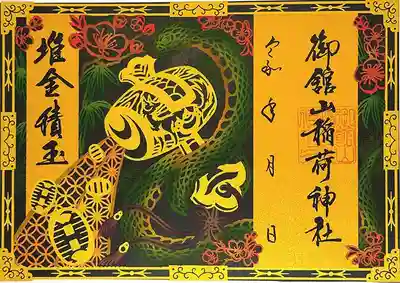 御舘山稲荷神社
令和 年 月 日
堆金積玉